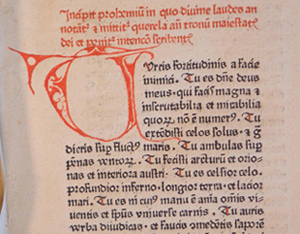 Incipit prohemiuʒ in quo diuine laudes an
notant᷑ ⁊ mittit᷑ querela añ tronũ maiestat᷑
dei et ꝓnit᷑ intenco scribent᷑
Turris fortitudinis a facie
inimici. Tu es dñe deus
meus. qui facis magna ⁊
inscrutabilia et mirabilia
quorꝝ nõ ē numerꝰ. Tu
extēdisti celos solus. ⁊ g̃
dieris sup̱ fluctꝰ maris. Tu ambulas sup̱
pēnas ventorꝝ. Tu fecisti arcturũ et orio-
nas et interiora austri. Tu es celsior celo.
profundior inferno. longior terra. et lacior
mari. Tu es in cuiꝰ manu ē aĩa omĩs vi-
uentis et sp̃us vniuerse carnis. Tu auris
verba diiudicas. et